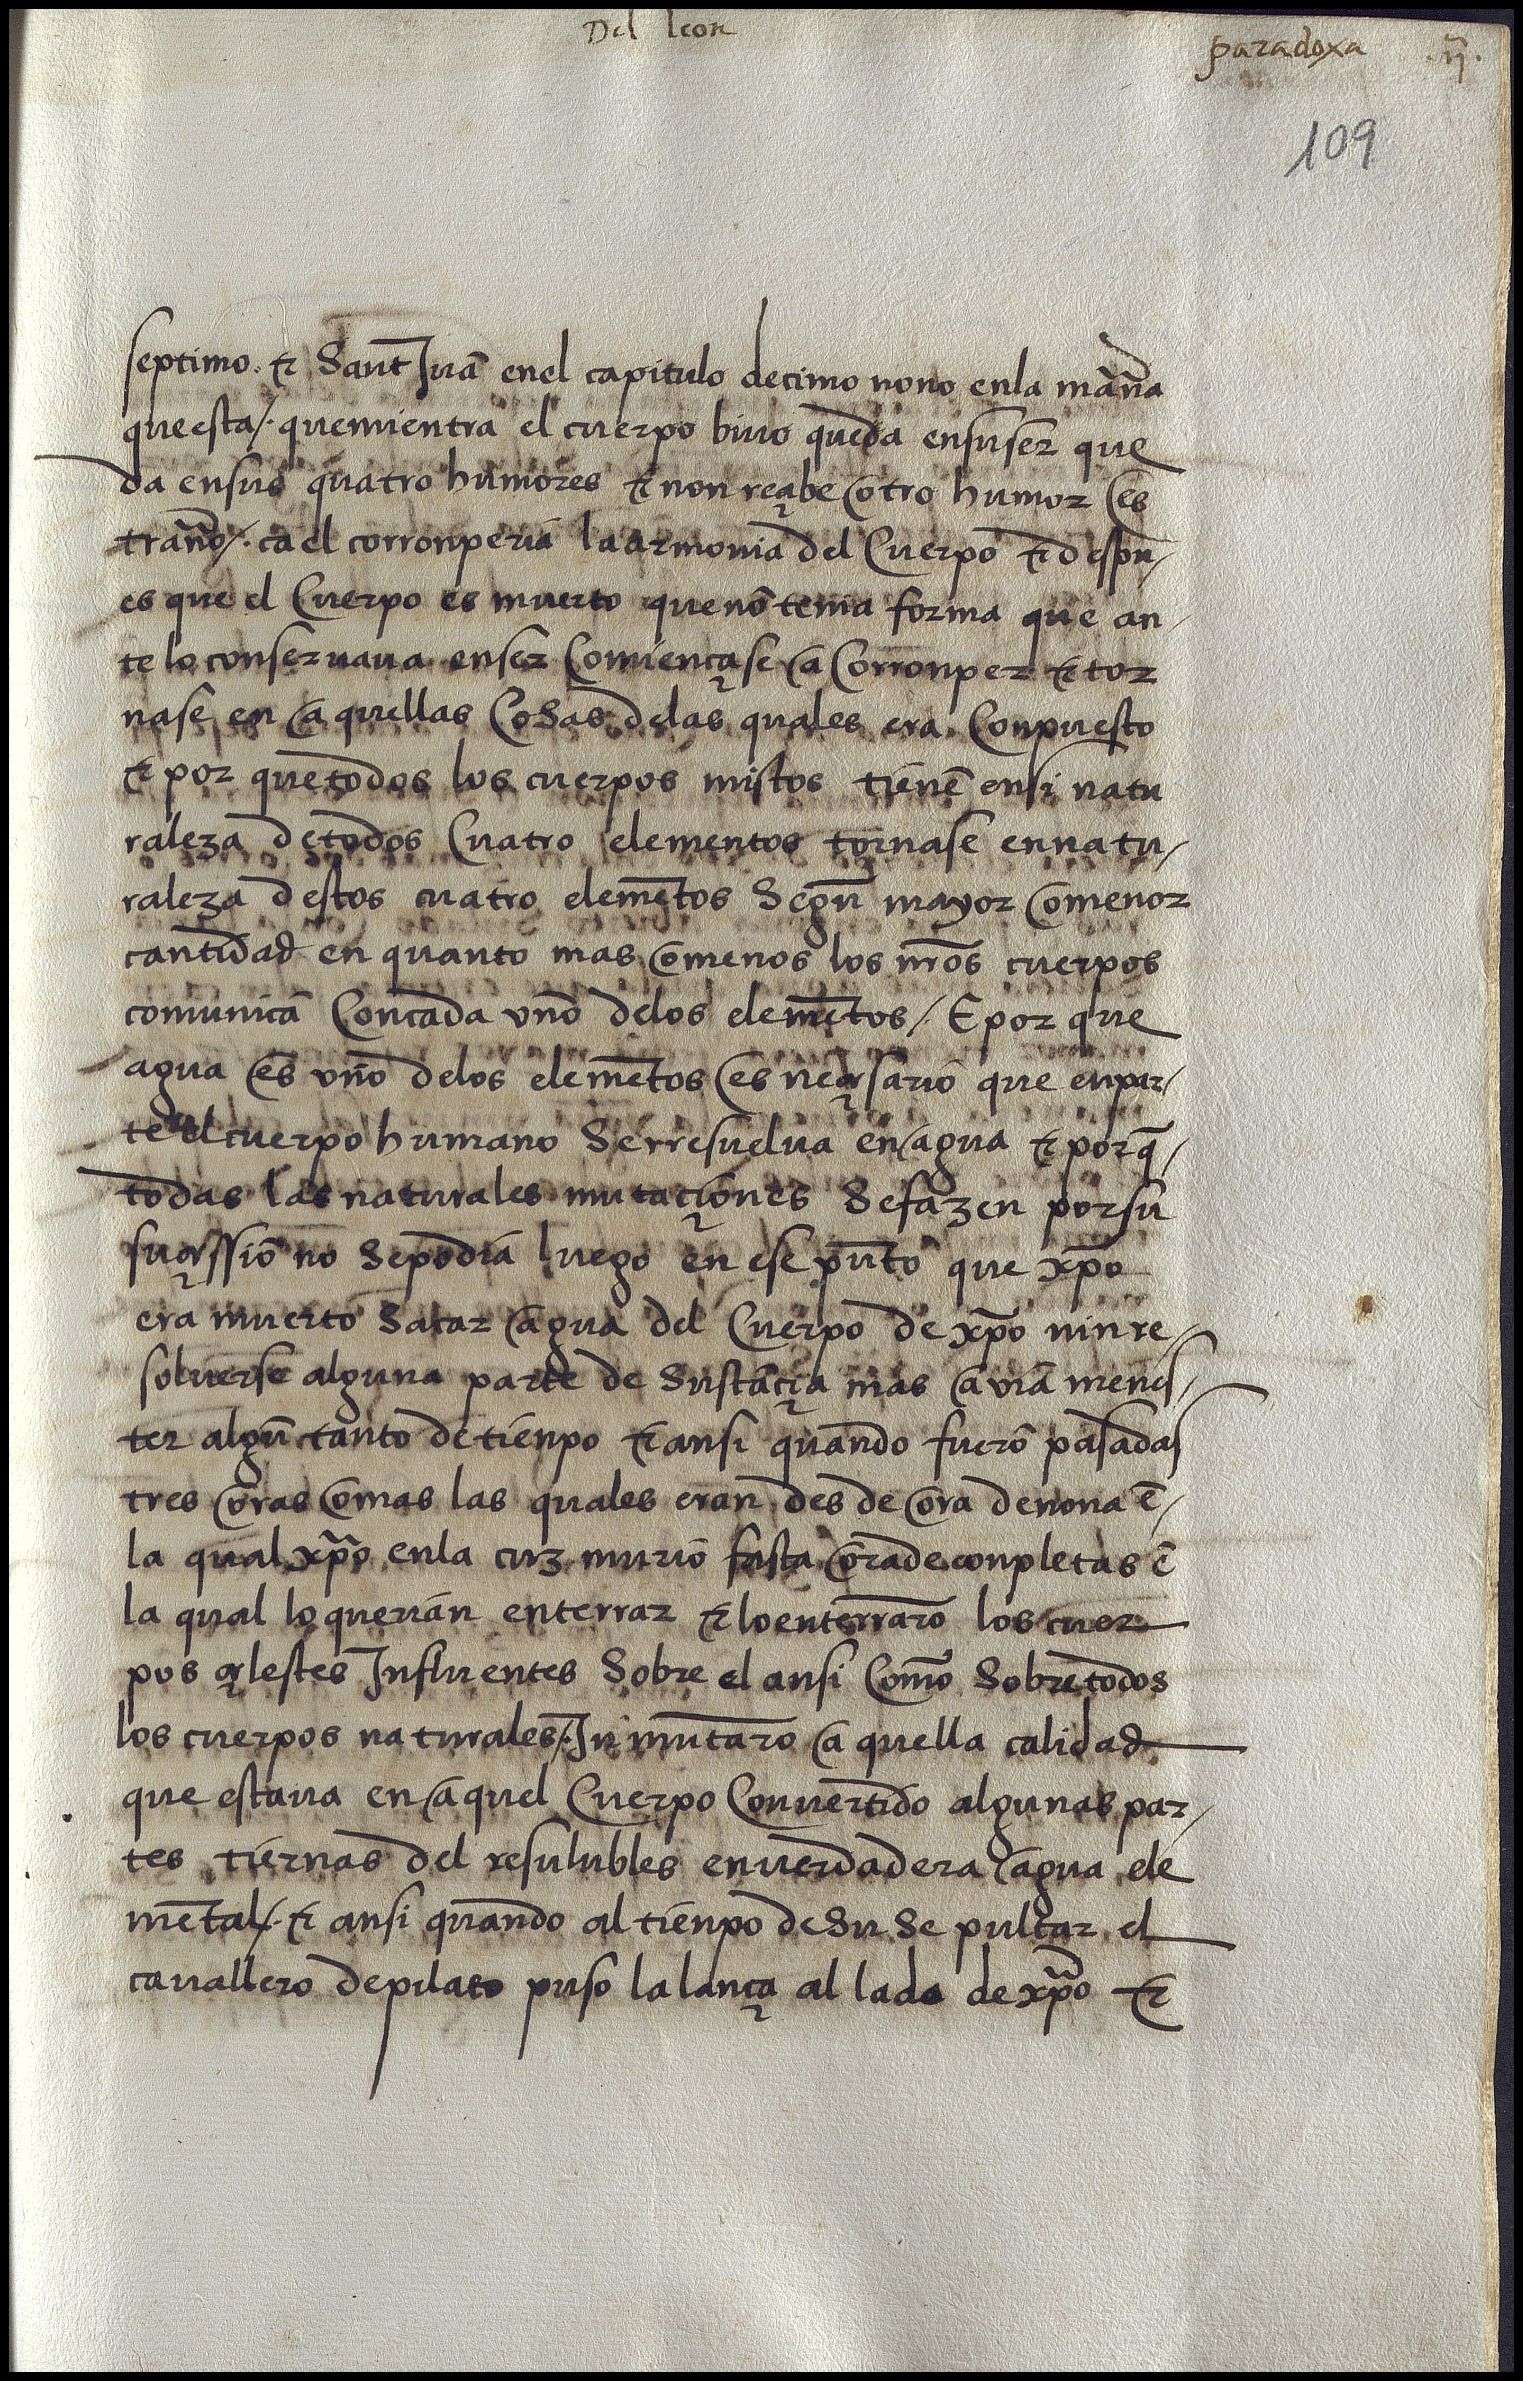 Del leon
paradoxa .ij.
109
septimo. & Sant Juā enel capitulo decimo nono enla mañā
questa/. quemientra el cuerpo biuo queda ensuser que
da ensus quatro humores & non reçibe otro humor es
traño/. ca el corronperia la armonia del Cuerpo & despu/
es que el Cuerpo es muerto quenō tenia forma que an/
te lo conseruaua enser Comiençase a Corronper & tor
nase en a quellas Cosas delas quales era Conpuesto
& por quetodos los cuerpos mistos tienē ensi natu
raleza detodos Cuatro elementos tornase ennatu/
raleza destos cuatro elemētos Segū mayor omenor
cantidad en quanto mas omenos los nr̄os cuerpos
comunicā Concada vno delos elemētos/. E por que
agua es vno delos elemētos es neçesario que enpar/
te el cuerpo humano Serresuelua en agua & porq̄/
todas las naturales mutaçiones Sefazen porsu
suçessiō no Sepodia luego en ese pūto que xp̄o
era muerto Sacar agua del Cuerpo de xp̄o nin re/
soluerse alguna parte de Sustāçia mas a uia menes/
ter algū tanto de tienpo & ansi quando fuerō pasadas
tres oras omas las quales eran des de ora denona ē/
la qual xp̄o enla cuz murio fasta oradeconpletas ē
la qual lo querian enterrar & loenterrarō los cuer
pos çelestes Influentes Sobre el ansi Como Sobretodos
los cuerpos naturales/. In mutarō a quella calidad
que estaua en aquel Cuerpo Conuertido algunas par/
tes tiernas del resulubles enuerdadera agua ele
mētal/. & ansi quando al tienpo de Su Se pultar el
cauallero depilato puso la lança al lado de xp̄o &